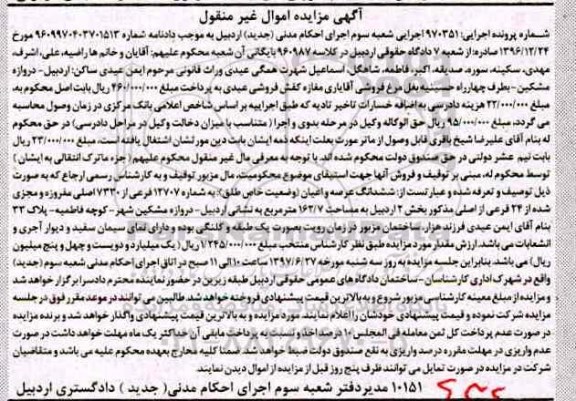 آگهی مزایده اموال غیر منقول
شماره پرونده اجرایی: ۹۷۰۳۵۱ اجرایی شعبه سوم اجرای احکام مدنی (جدید) اردبیل به موجب دادنامه شماره ۹۶۰۹۹۷۰۴۰۳۷۰۱۵۱۳ مورخ
۱۳۹۶/۱۲/۲۴ صادره: از شعبه ۷ دادگاه حقوقی اردبیل در کلاسه ۹۶۰۹۸۷ بایگانی آن شعبه محکوم علیهم: آقایان و خانم ها راضیه، علی، اشرف،
مهدی، سکینه، سوره، صدیقه، اکبر، فاطمه، شاهگل، اسماعیل شهرت همگی عیدی وراث قانونی مرحوم ایمن عیدی ساکن: اردبیل - دروازه
مشکین - بطرف چهارراه حسینیه بغل مرغ فروشی آقایاری مغازه کفش فروشی عیدی به پرداخت مبلغ ۴۶۰/۰۰۰/۰۰۰ ریال بابت اصل محکوم به،
مبلغ ۲۲/۰۰۰/۰۰۰ هزینه دادرسی به اضافه خسارات تاخیر تادیه که طبق اجراییه بر اساس شاخص اعلامی بانک مرکزی در زمان وصول محاسبه
می گردد، مبلغ ۹۵/۰۰۰/۰۰۰ ریال حق الوکاله وکیل در مرحله بدوی و اجرا (متناسب با میزان دخالت وکیل در مراحل دادرسی) در حق محکوم
له بنام آقای علیرضا شیخ باقری قابل وصول از ماترک مورث بعلت اینکه ذمه ایشان بابت دین مورثشان اشتغال یافته است، مبلغ ۲۳/۰۰۰/۰۰۰ ریال
بابت نیم عشر دولتی در حق صندوق دولت محکوم شده اند. با توجه به معرفی مال غیر منقول محکوم علیهم (جزء ماترک انتقالی به ایشان)
توسط محکوم له، مبنی بر توقیف و فروش آنها جهت استیفای موضوع محکومیت، مال مزبور توقیف و به کارشناس رسمی ارجاع که به صورت
ذیل توصیف و تعرفه شده و عبارتست از: ششدانگ عرصه و اعیان (وضعیت خاص طلق): به شماره ۱۲۷۰۷ فرعی از ۷۳۳۰ اصلی مفروزه و مجزی
شده از ۲۴ فرعی از اصلی مذکور بخش ۲ اردبیل به مساحت ۱۶۲/۷ مترمربع به نشانی اردبیل - دروازه مشکین شهر - کوچه فاطمیه - پلاک ۳۳
بنام آقای ایمن عیدی فرزند هزار. ساختمان مزبور در زمان رویت بصورت یک طبقه و کلنگی بوده و دارای نمای سیمان سفید و دیوار آجری و
انشعابات می باشد. ارزش مقدار مورد مزایده طبق نظر کارشناس منتخب مبلغ ۱/۲۴۵/۰۰۰/۰۰۰ ریال (یک میلیارد و دویست و چهل و پنج میلیون
ریال) می باشد. بنابراین جلسه مزایده به روز سه شنبه مورخه ۱۳۹۷/۶/۲۷ ساعت ۱۰ الی ۱۱ صبح در اتاق اجرای احکام مدنی شعبه سوم (جدید)
واقع در شهرک اداری کارشناسان - ساختمان دادگاه های عمومی حقوقی اردبیل طبقه زیرین در حضور نماینده محترم دادسرا برگزار خواهد شد
و مزایده از مبلغ معینه کارشناسی مزبور شروع و به بالاترین قیمت پیشنهادی فروخته خواهد شد. طالبین می توانند در موعد مقرر فوق در جلسه
مزایده شرکت نموده و قیمت پیشنهادی خودشان را اعلام نمایند. مورد مزایده و به بالاترین قیمت پیشنهادی واگذار خواهد شد و برنده مزایده
در صورت عدم پرداخت کل ثمن معامله فی المجلس ۱۰ درصد اخذ و نسبت به پرداخت مابقی آن حداکثر یک ماه مهلت خواهد داشت در صورت
عدم واریزی در مهلت مقرره درصد واریزی به نفع صندوق دولت ضبط خواهد شد. ضمنا کلیه مخارج بعهده محکوم علیه می باشد و متقاضیان
شرکت در مزایده در صورت تمایل می توانند ظرف پنج روز قبل از مزایده از اموال دیدن نمایند.
۱۰۱۵۱ مدیر دفتر شعبه سوم اجرای احکام مدنی (جدید) دادگستری اردبیل